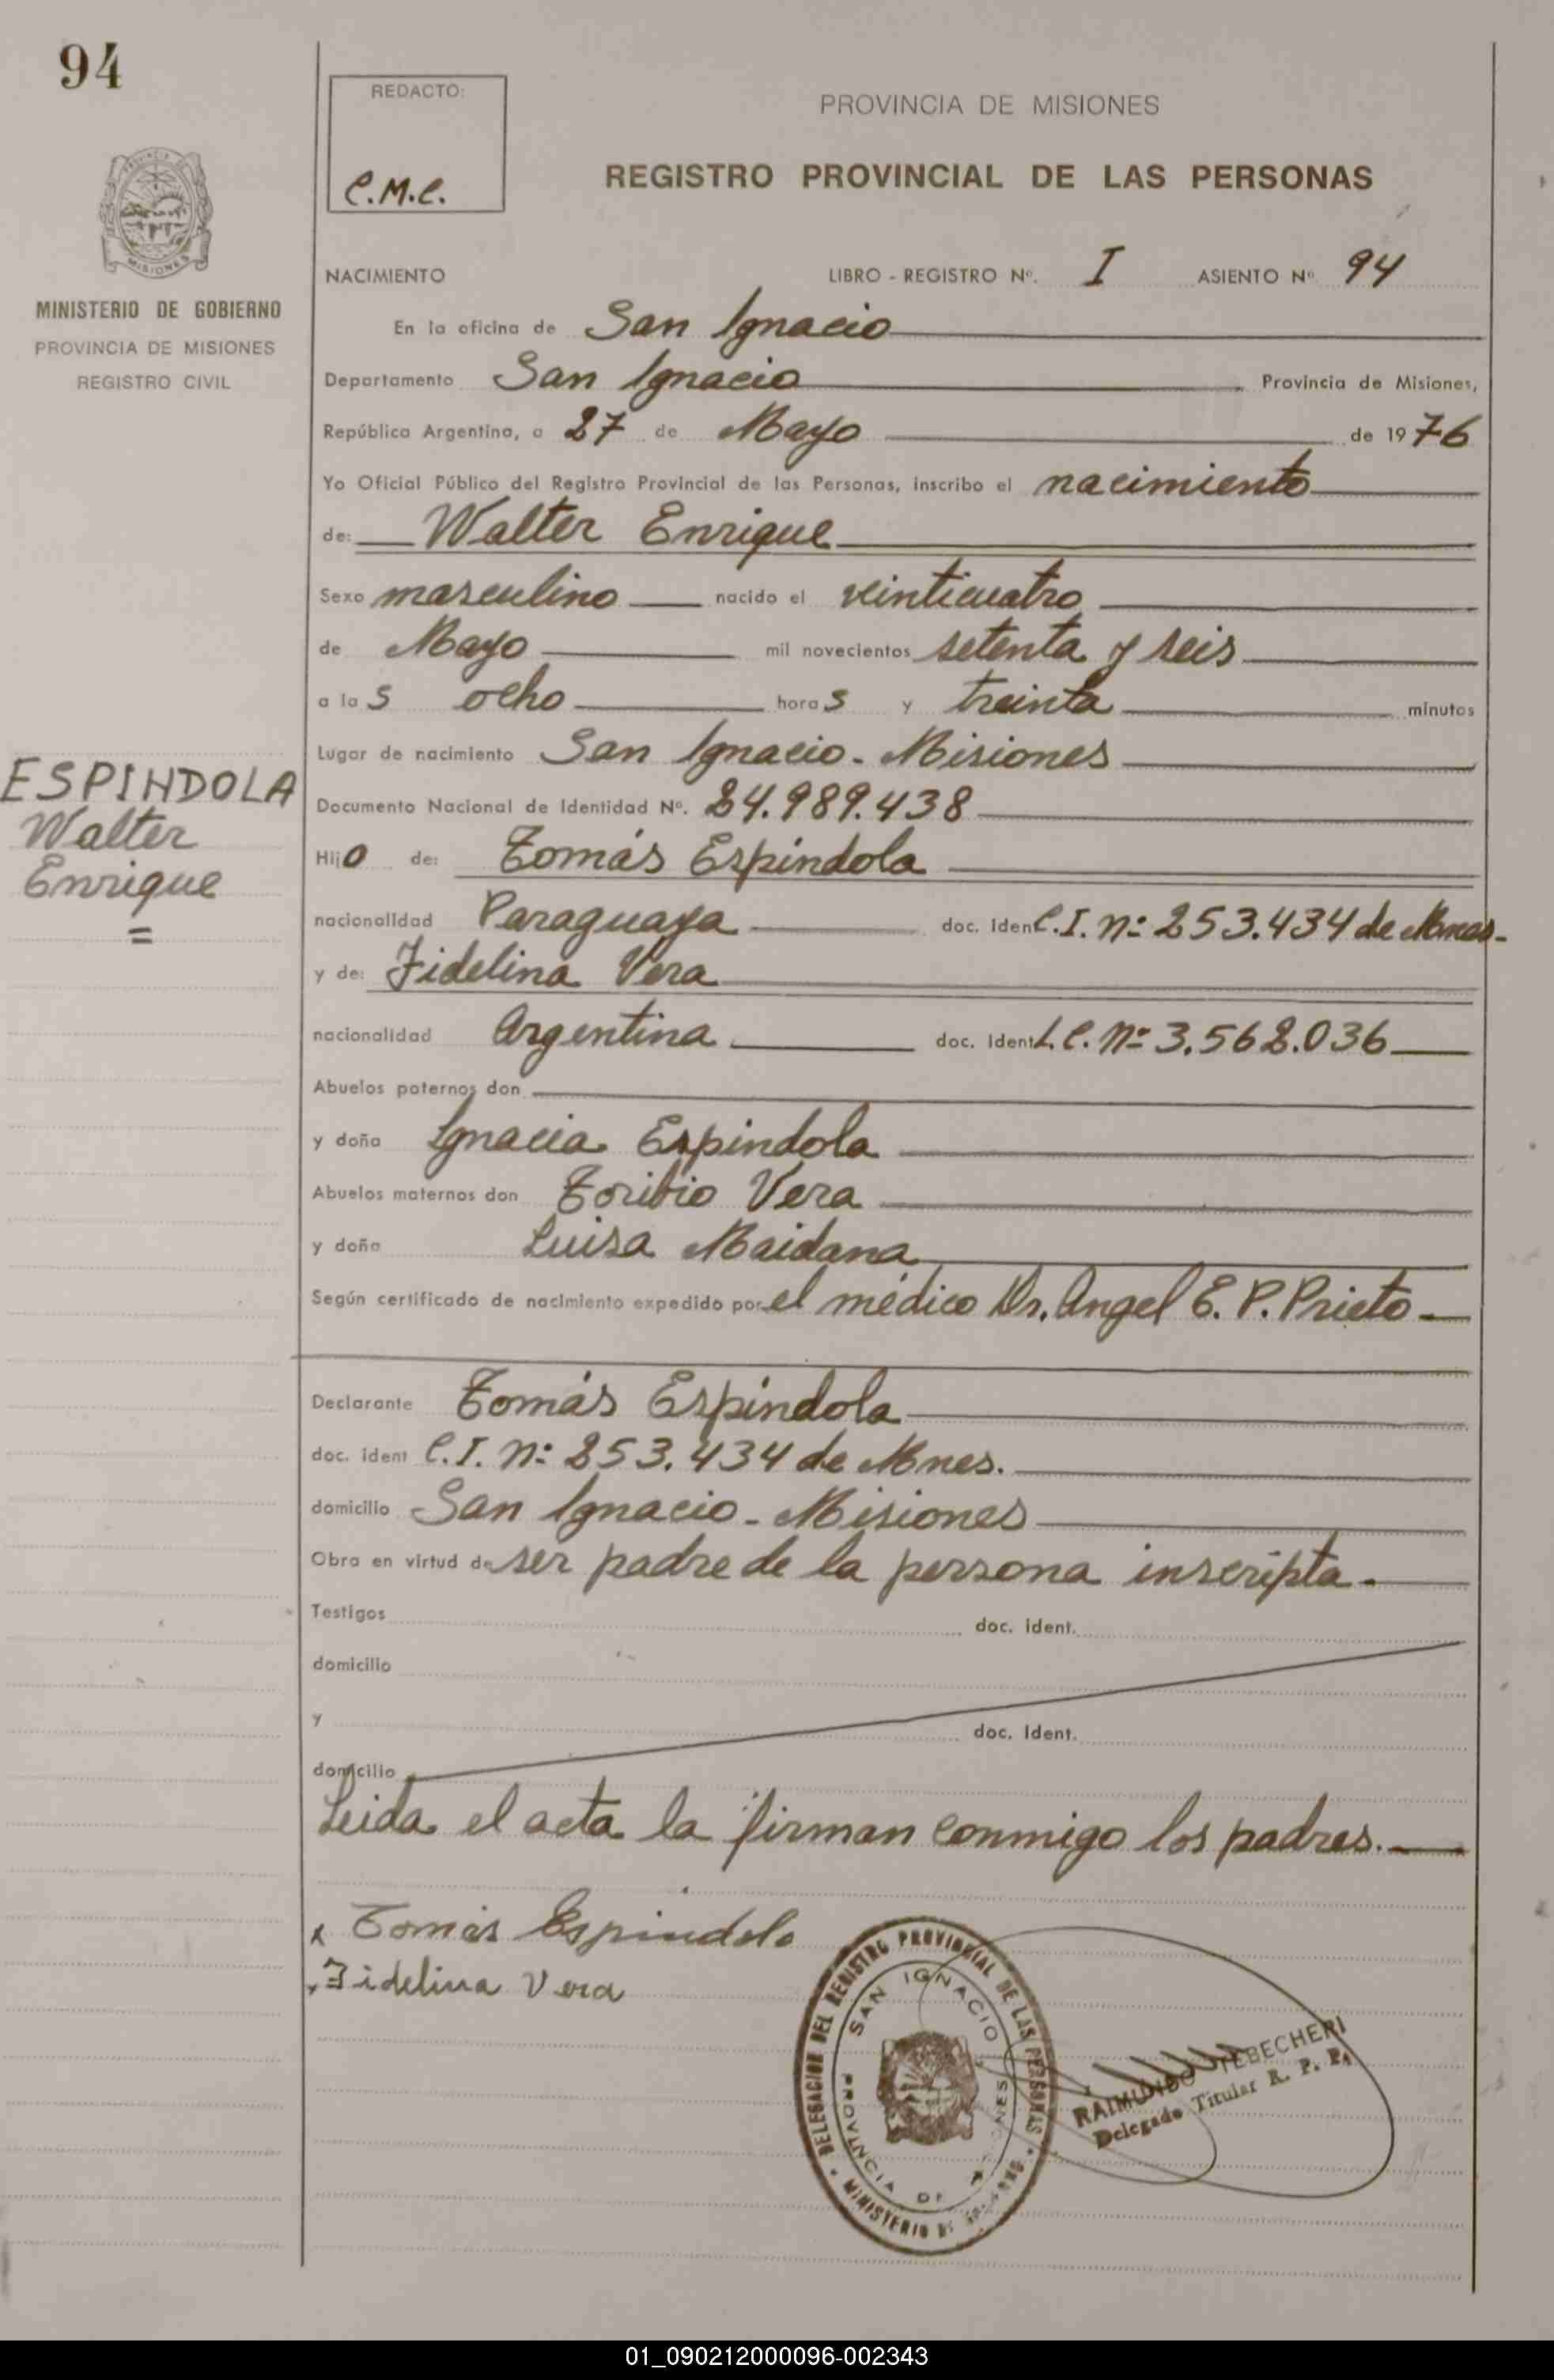 94
REDACTO:
C.M.C.
PROVINCIA DE MISIONES
REGISTRO PROVINCIAL DE LAS PERSONAS
MISIONES
MINISTERIO DE GOBIERNO
PROVINCIA DE MISIONES
REGISTRO CIVIL
NACIMIENTO LIBRO - REGISTRO Nº. I ASIENTO Nº 94
En la oficina de San Ignacio
Departamento San Ignacio Provincia de Misiones,
República Argentina, a 27 de Mayo de 1976
Yo Oficial Público del Registro Provincial de las Personas, inscribo el nacimiento
de: Walter Enrique
Sexo masculino nacido el veinticuatro
de Mayo mil novecientos setenta y seis
a las ocho horas y treinta minutos
Lugar de nacimiento San Ignacio - Misiones
ESPINDOLA
Walter
Enrique
=
Documento Nacional de Identidad Nº. 24.989.438
Hijo de: Tomás Espíndola
nacionalidad Paraguaya doc. Iden C.I. nº 253.434 de Mnes.
y de: Fidelina Vera
nacionalidad Argentina doc. Ident L.C. Nº 3.562.036
Abuelos paternos don
y doña Ignacia Espíndola
Abuelos maternos don Toribio Vera
y doña Luisa Maidana
Según certificado de nacimiento expedido por el médico Dr. Angel E. P. Prieto
Declarante Tomás Espíndola
doc. ident C.I. nº 253.434 de Mnes.
domicilio San Ignacio - Misiones
Obra en virtud de ser padre de la persona inscripta.
Testigos doc. ident.
domicilio
y doc. Ident.
domicilio
Leida el acta la firman conmigo los padres.
x Tomás Espindola
Fidelina Vera
DELEGACION DEL REGISTRO PROVINCIAL DE LAS PERSONAS
SAN IGNACIO
PROVINCIA DE MISIONES
MINISTERIO DE
RAIMUNDO TEBECHERI
Delegado Titular R. P. P.
01_090212000096-002343